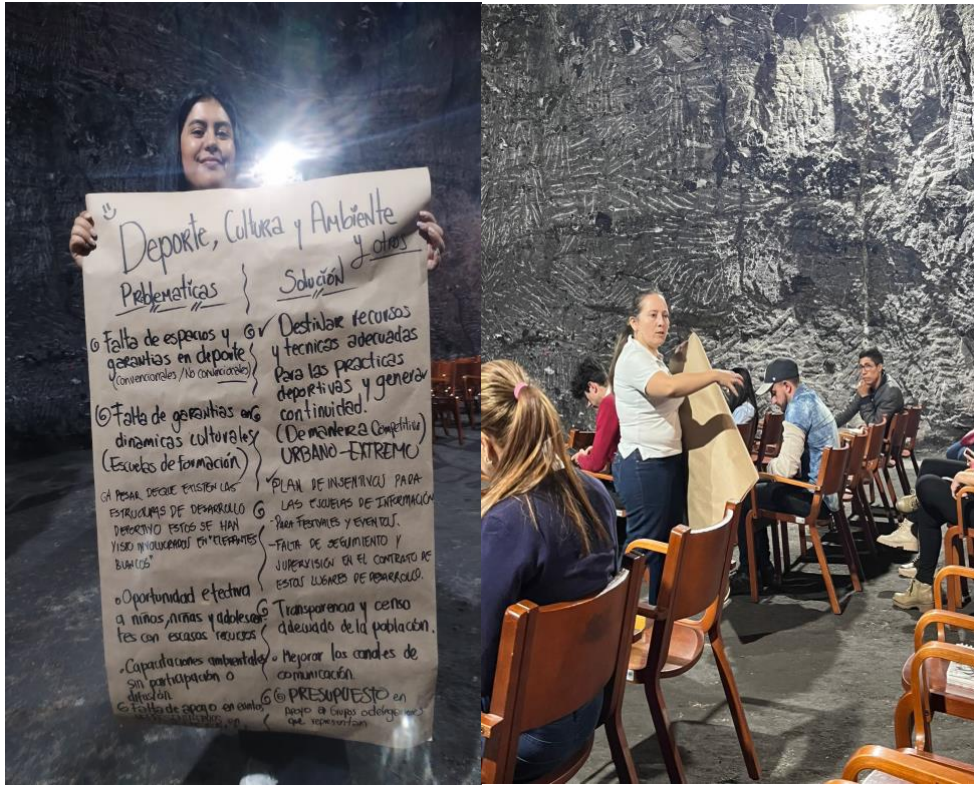 Deporte, Cultura y Ambiente
y otros
Problematicas
Falta de espacios y
garantias en deporte
(convencionales/No convencionales)
Falta de garantias en
dinamicas culturales
(Escuelas de formación)
A PESAR DE QUE EXISTEN LAS
ESTRUCTURAS DE DESARROLLO
DEPORTIVO ESTOS SE HAN
VISTO INVOLUCRADOS EN "ELEFANTES
BLANCOS"
Oportunidad efectiva
a niños, niñas y adolescen-
tes con escasos recursos
Capacitaciones ambientales
sin participación o
difusión
Falta de apoyo en eventos
en
Solución
Destinar recursos
y tecnicas adecuadas
Para las practicas
deportivas y generar
continuidad.
(De manera Competitiva)
URBANO-EXTREMO
PLAN DE INSENTIVOS PARA
LAS ESCUELAS DE INFORMACIÓN
-PARA FESTIVALES Y EVENTOS.
-FALTA DE SEGUIMIENTO Y
SUPERVISION EN EL CONTRATO DE
ESTOS LUGARES DE DESARROLLO.
Transparencia y censo
adecuado de la población.
Mejorar los canales de
comunicación.
PRESUPUESTO en
apoyo a Grupos o delegaciones
que representan